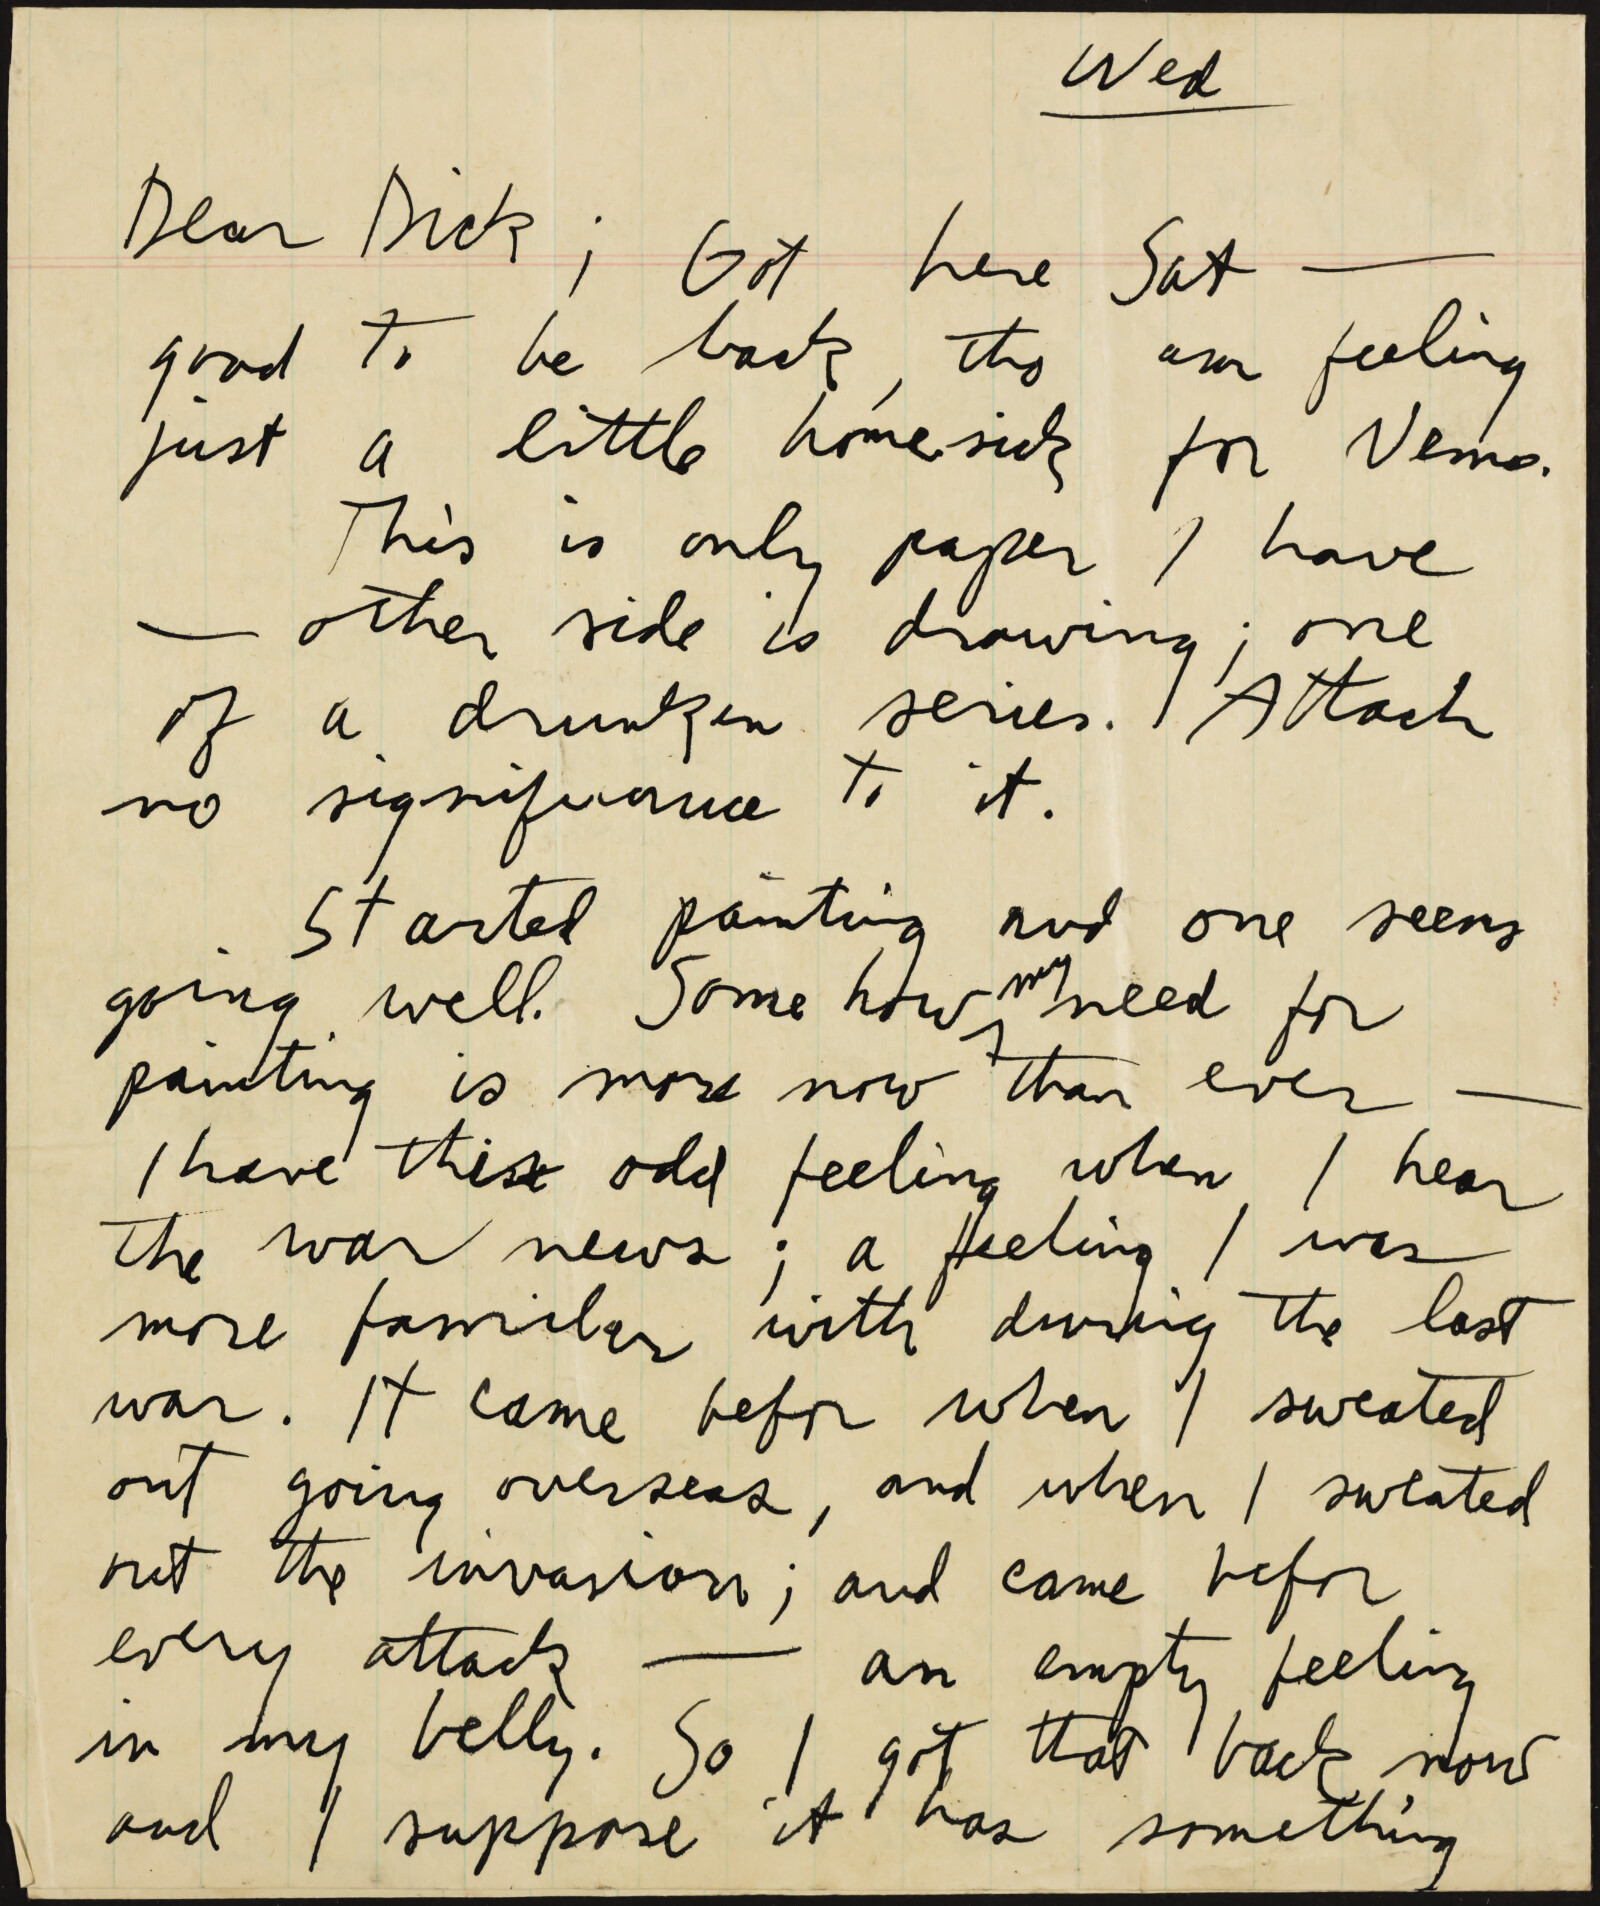 Wed
Dear Dick; Got here Sat —
good to be back, tho am feeling
just a little homesick for Vemo.
This is only paper I have
— other side is drawing; one
of a drunken series. Attach
no significance to it.
Started painting and one seems
going well. Somehow my need for
painting is more now than ever —
I have this odd feeling when I hear
the war news; a feeling I was
more familiar with during the last
war. It came befor when I sweated
out going overseas, and when I sweated
out the invasion; and came befor
every attack — an empty feeling
in my belly. So I got that back now
and I suppose it has something